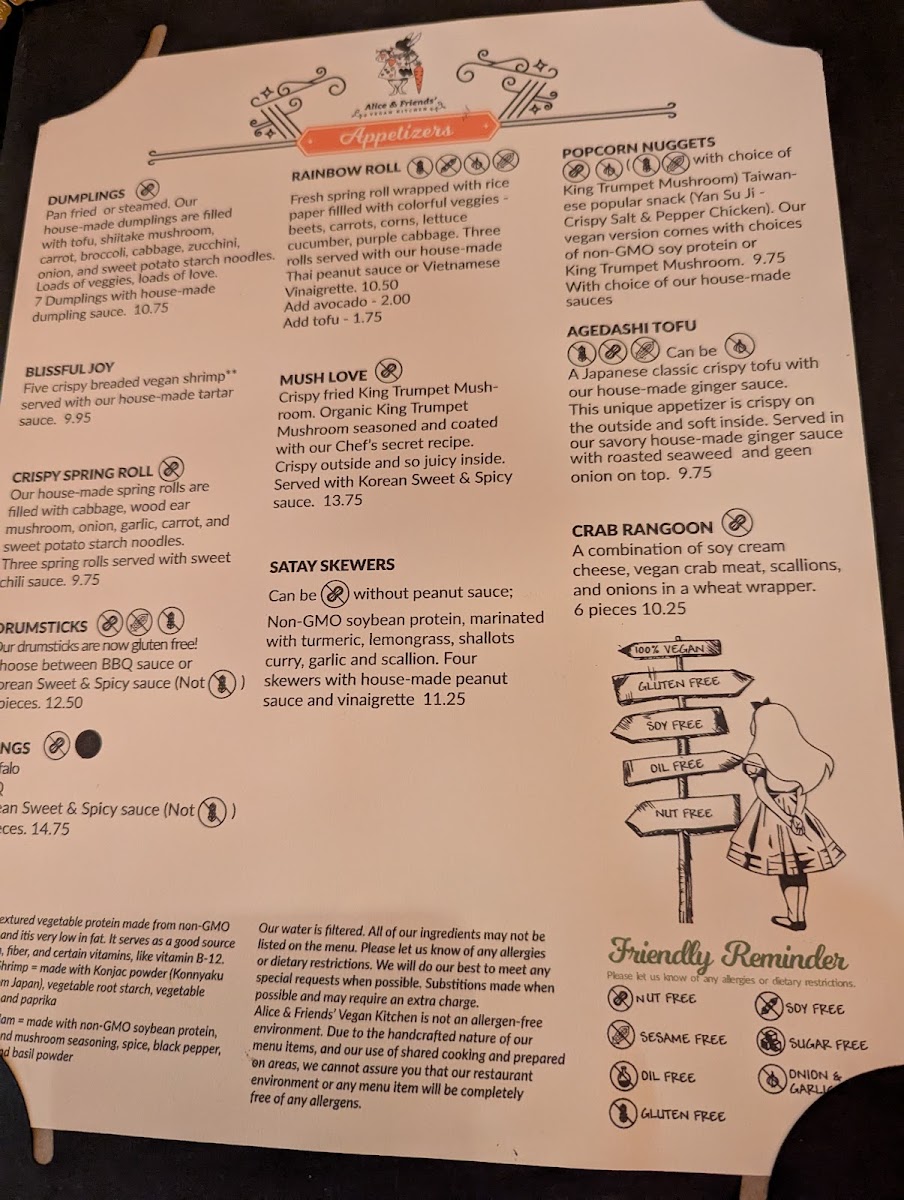 Alice & Friends'
VEGAN KITCHEN
Appetizers
DUMPLINGS
Pan fried or steamed. Our
house-made dumplings are filled
with tofu, shiitake mushroom,
carrot, broccoli, cabbage, zucchini,
onion, and sweet potato starch noodles.
Loads of veggies, loads of love.
7 Dumplings with house-made
dumpling sauce. 10.75
BLISSFUL JOY
Five crispy breaded vegan shrimp**
served with our house-made tartar
sauce. 9.95
CRISPY SPRING ROLL
Our house-made spring rolls are
filled with cabbage, wood ear
mushroom, onion, garlic, carrot, and
sweet potato starch noodles.
Three spring rolls served with sweet
chili sauce. 9.75
DRUMSTICKS
Our drumsticks are now gluten free!
hoose between BBQ sauce or
orean Sweet & Spicy sauce (Not )
pieces. 12.50
NGS
falo
Q
ean Sweet & Spicy sauce (Not )
eces. 14.75
extured vegetable protein made from non-GMO
and itis very low in fat. It serves as a good source
, fiber, and certain vitamins, like vitamin B-12.
Shrimp = made with Konjac powder (Konnyaku
m Japan), vegetable root starch, vegetable
and paprika
am = made with non-GMO soybean protein,
nd mushroom seasoning, spice, black pepper,
d basil powder
RAINBOW ROLL
Fresh spring roll wrapped with rice
paper fillled with colorful veggies -
beets, carrots, corns, lettuce
cucumber, purple cabbage. Three
rolls served with our house-made
Thai peanut sauce or Vietnamese
Vinaigrette. 10.50
Add avocado - 2.00
Add tofu - 1.75
MUSH LOVE
Crispy fried King Trumpet Mush-
room. Organic King Trumpet
Mushroom seasoned and coated
with our Chef's secret recipe.
Crispy outside and so juicy inside.
Served with Korean Sweet & Spicy
sauce. 13.75
SATAY SKEWERS
Can be without peanut sauce;
Non-GMO soybean protein, marinated
with turmeric, lemongrass, shallots
curry, garlic and scallion. Four
skewers with house-made peanut
sauce and vinaigrette 11.25
Our water is filtered. All of our ingredients may not be
listed on the menu. Please let us know of any allergies
or dietary restrictions. We will do our best to meet any
special requests when possible. Substitions made when
possible and may require an extra charge.
Alice & Friends' Vegan Kitchen is not an allergen-free
environment. Due to the handcrafted nature of our
menu items, and our use of shared cooking and prepared
on areas, we cannot assure you that our restaurant
environment or any menu item will be completely
free of any allergens.
POPCORN NUGGETS
( with choice of
King Trumpet Mushroom) Taiwan-
ese popular snack (Yan Su Ji -
Crispy Salt & Pepper Chicken). Our
vegan version comes with choices
of non-GMO soy protein or
King Trumpet Mushroom. 9.75
With choice of our house-made
sauces
AGEDASHI TOFU
Can be
A Japanese classic crispy tofu with
our house-made ginger sauce.
This unique appetizer is crispy on
the outside and soft inside. Served in
our savory house-made ginger sauce
with roasted seaweed and geen
onion on top. 9.75
CRAB RANGOON
A combination of soy cream
cheese, vegan crab meat, scallions,
and onions in a wheat wrapper.
6 pieces 10.25
100% VEGAN
GLUTEN FREE
SOY FREE
OIL FREE
NUT FREE
Friendly Reminder
Please let us know of any allergies or dietary restrictions.
NUT FREE
SESAME FREE
OIL FREE
GLUTEN FREE
SOY FREE
SUGAR FREE
ONION &
GARLIC